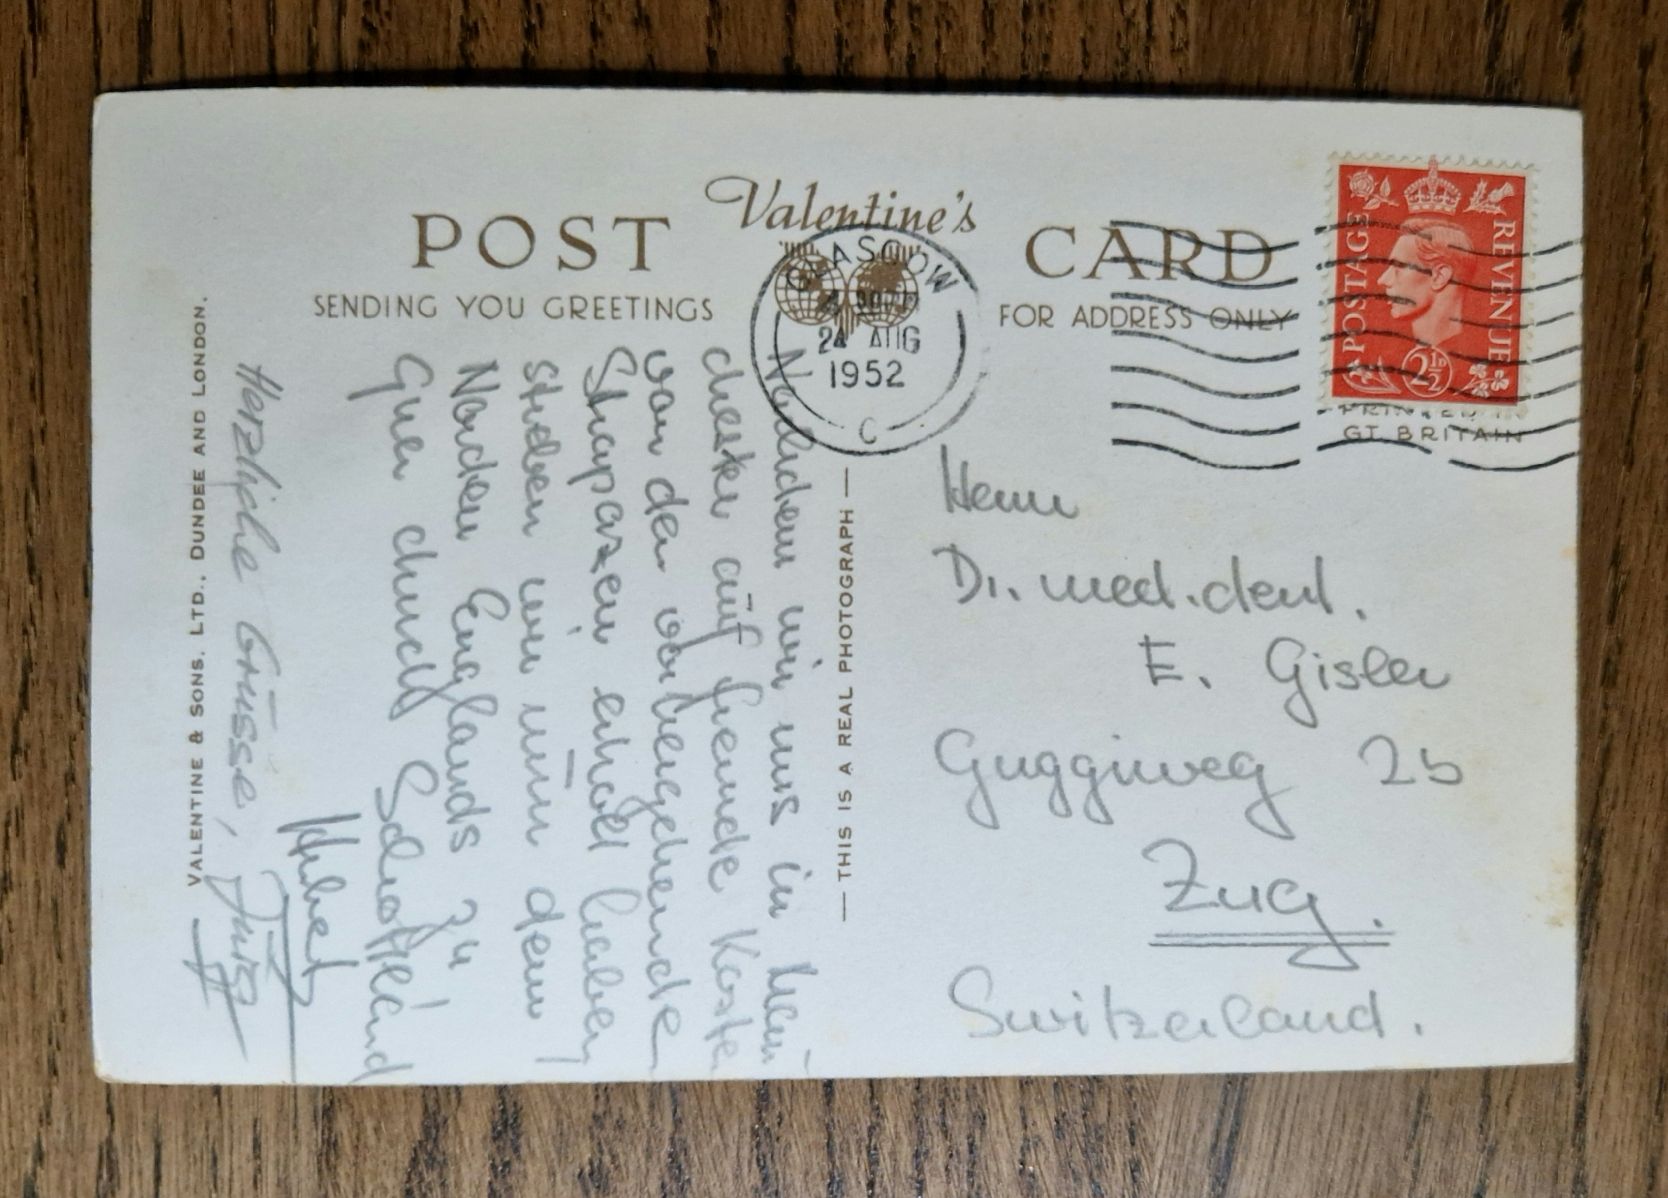 Valentine's
POST CARD
SENDING YOU GREETINGS
FOR ADDRESS ONLY
GLASGOW
24 AUG
1952
C
POSTAGE
REVENUE
2½D
PRINTED IN
GT. BRITAIN
Nachdem wir uns in Man-
chester auf fremde Kosten
von den vorhergehende
Strapazen erholt haben,
streben wir nun dem
Norden Englands zu
quer durch Schottland
Herzliche Grüsse,
Hubert
VALENTINE & SONS. LTD., DUNDEE AND LONDON.
— THIS IS A REAL PHOTOGRAPH —
Herrn
Dr. med. dent.
E. Gisler
Guggiweg 25
Zug.
Switzerland.